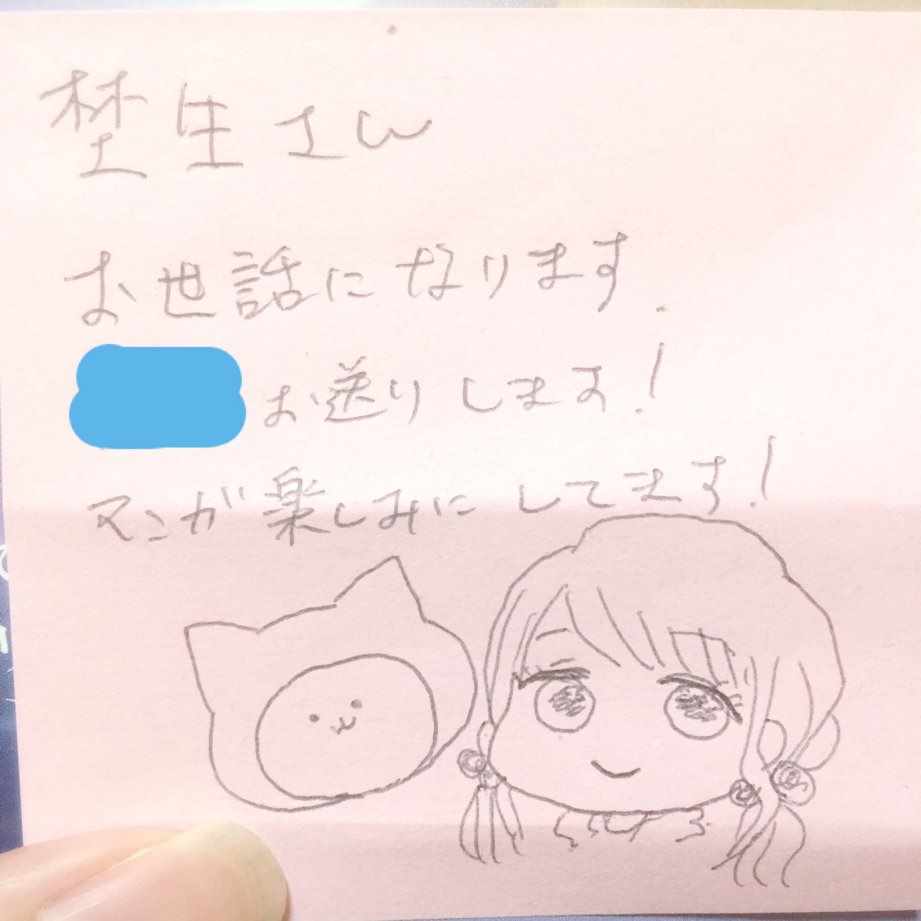 埜生さん
お世話になります.
お送りします!
マンガ楽しみにしてます!